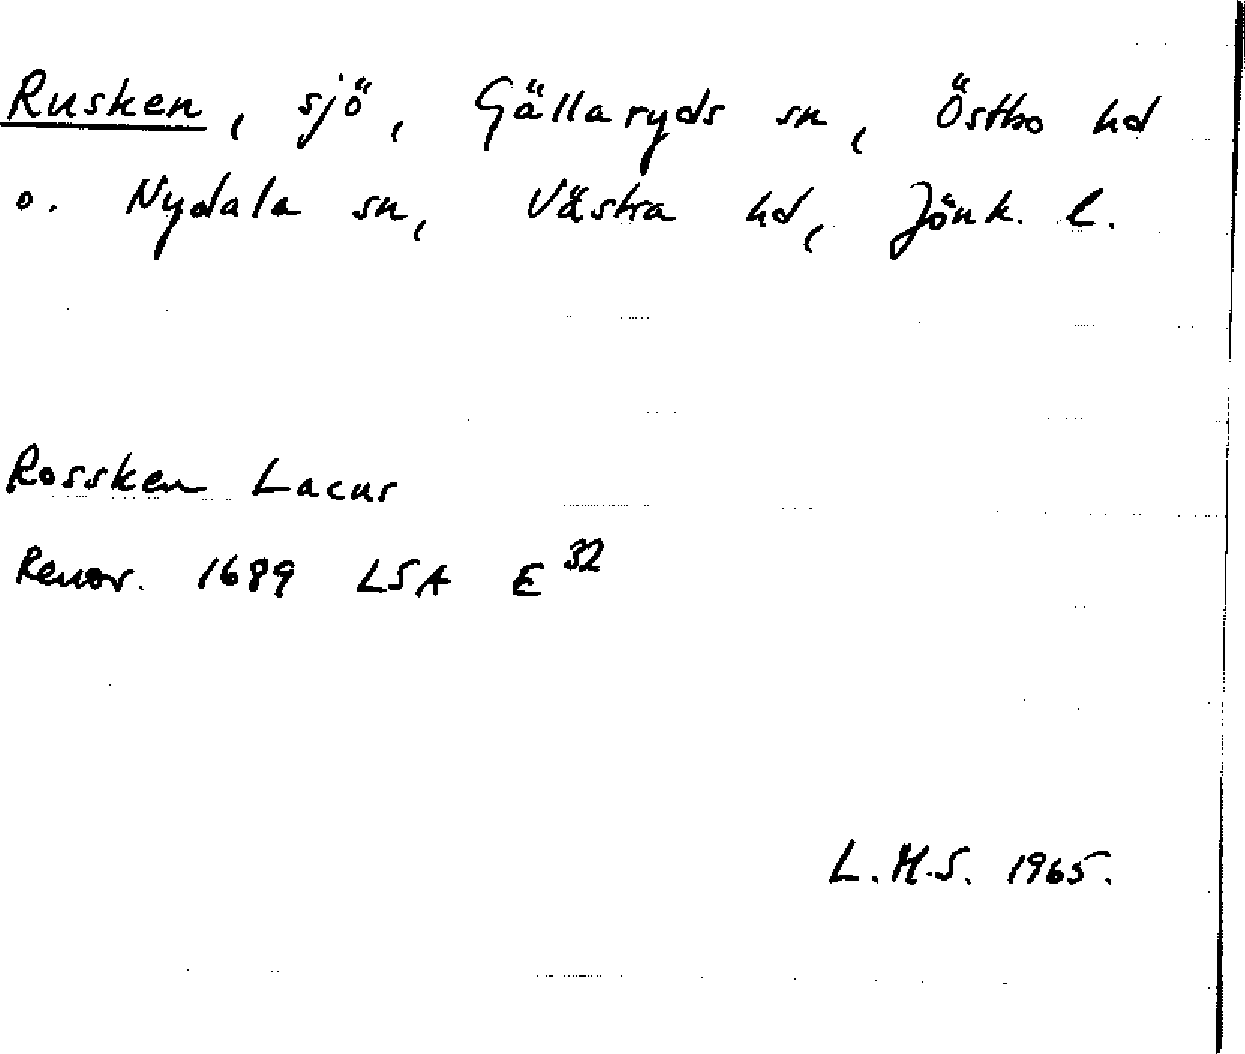 Rusken, sjö, Gällaryds sn, Östbo hd
o. Nydala sn, Västra hd, Jönk. l.
Rossken Lacus
Renov. 1689 LSA E 32
L.M.S. 1965.